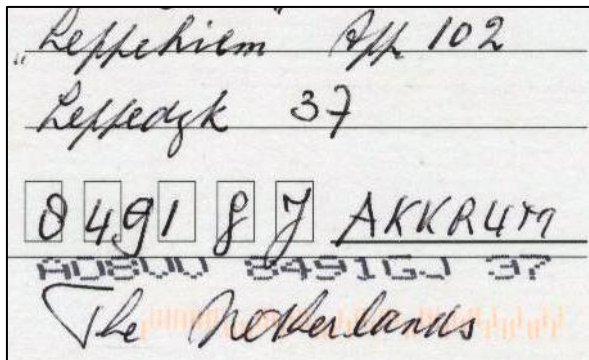 "Leppehiem" App 102
Leppedyk 37
8491 GJ AKKRUM
AO8UU 8491GJ 37
The Netherlands